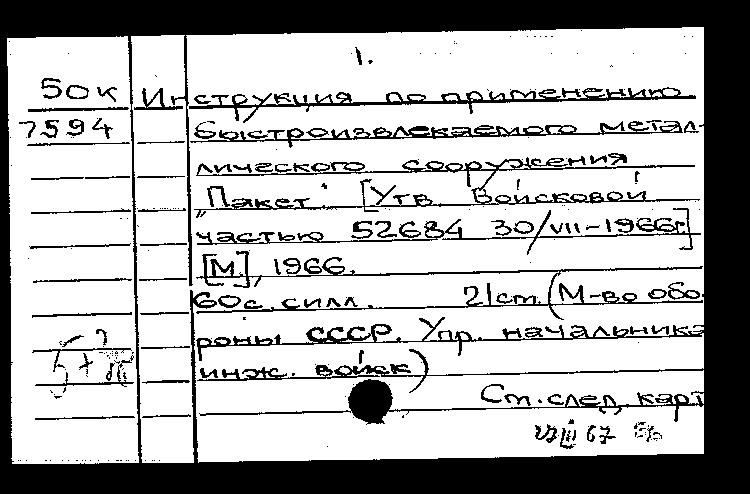 1.
50к Инструкция по применению
7594 быстроизвлекаемого метал-
лического сооружения
„Пакет" [Утв. Войсковой
частью 52684 30/VII-1966г]
[М], 1966.
60с. с илл. 21см. (М-во обо-
роны СССР. Упр. начальника
инж. войск)
См. след. карт
27 III 67